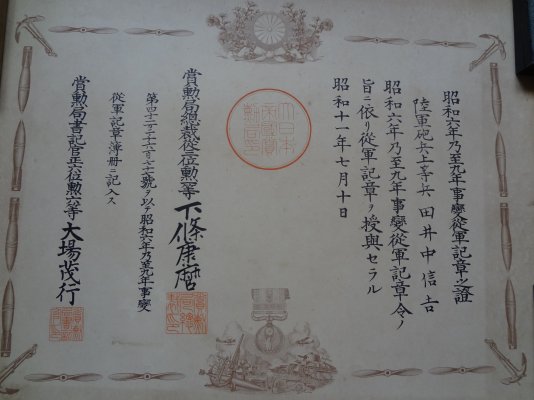 昭和六年乃至九年事變從軍記章之證
陸軍砲兵上等兵 田井中信吉
昭和六年乃至九年事變從軍記章令ノ
旨ニ依リ從軍記章ヲ授與セラル
昭和十一年七月十日
大日本
帝國賞
勲局印
賞勲局總裁從三位勲二等 下條康麿
號ヲ以テ昭和六年乃至九年事變
從軍記章簿册ニ記入ス
賞勲局書記官正六位勲六等 大場茂行